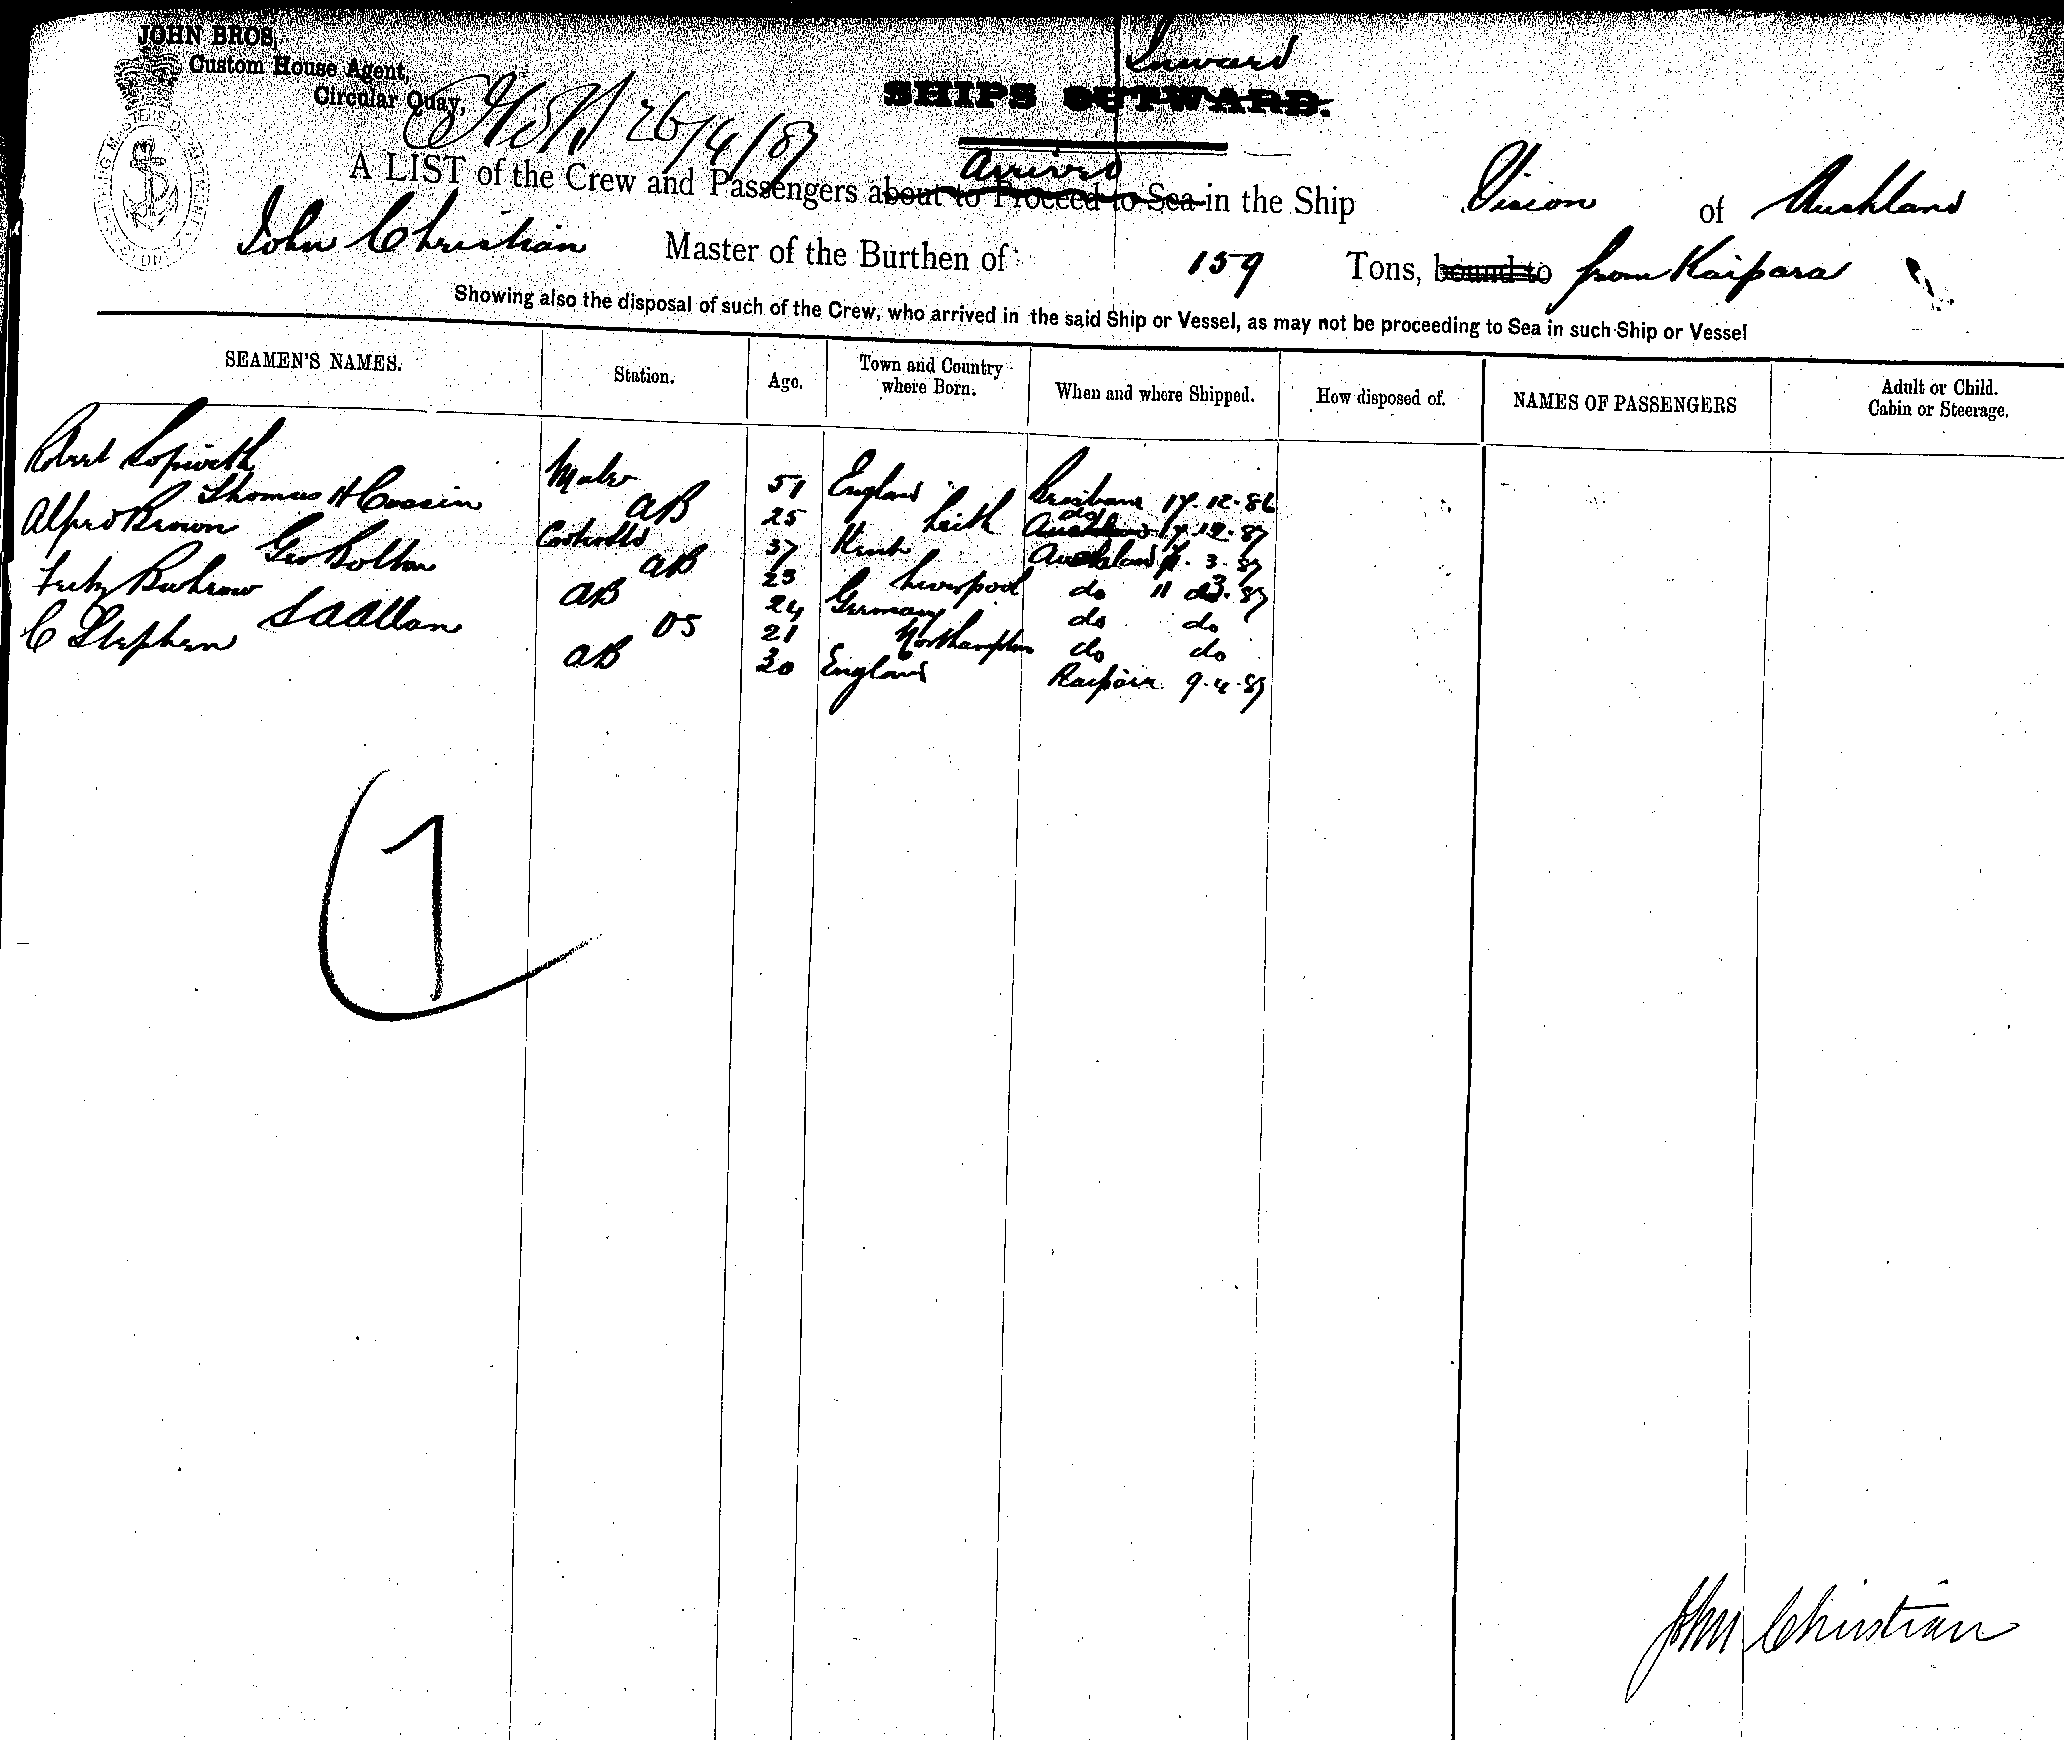 JOHN BROS,
Custom House Agent,
Circular Quay,
26/4/87
Inward
SHIPS OUTWARD.
Arrived
A LIST of the Crew and Passengers about to Proceed to Sea in the Ship Vision of Auckland
John Christian Master of the Burthen of 159 Tons, bound to from Kaipara
Showing also the disposal of such of the Crew, who arrived in the said Ship or Vessel, as may not be proceeding to Sea in such Ship or Vessel
SEAMEN'S NAMES. Station. Age. Town and Country where Born. When and where Shipped. How disposed of. NAMES OF PASSENGERS Adult or Child. Cabin or Steerage.
Robert Sopwith 51 England Brisbane 17.12.86
Thomas H AB 25 Leith Auckland do 17.12.87
Alfred Brown 37 Kent Auckland 3.87
Geo Bolton AB 23 Liverpool do 11 do 3.87
Fritz AB 24 Germany do do
S A Allan OS 21 Northampton do do
C Stephen AB 30 England Kaipara 9.4.87
7
John Christian